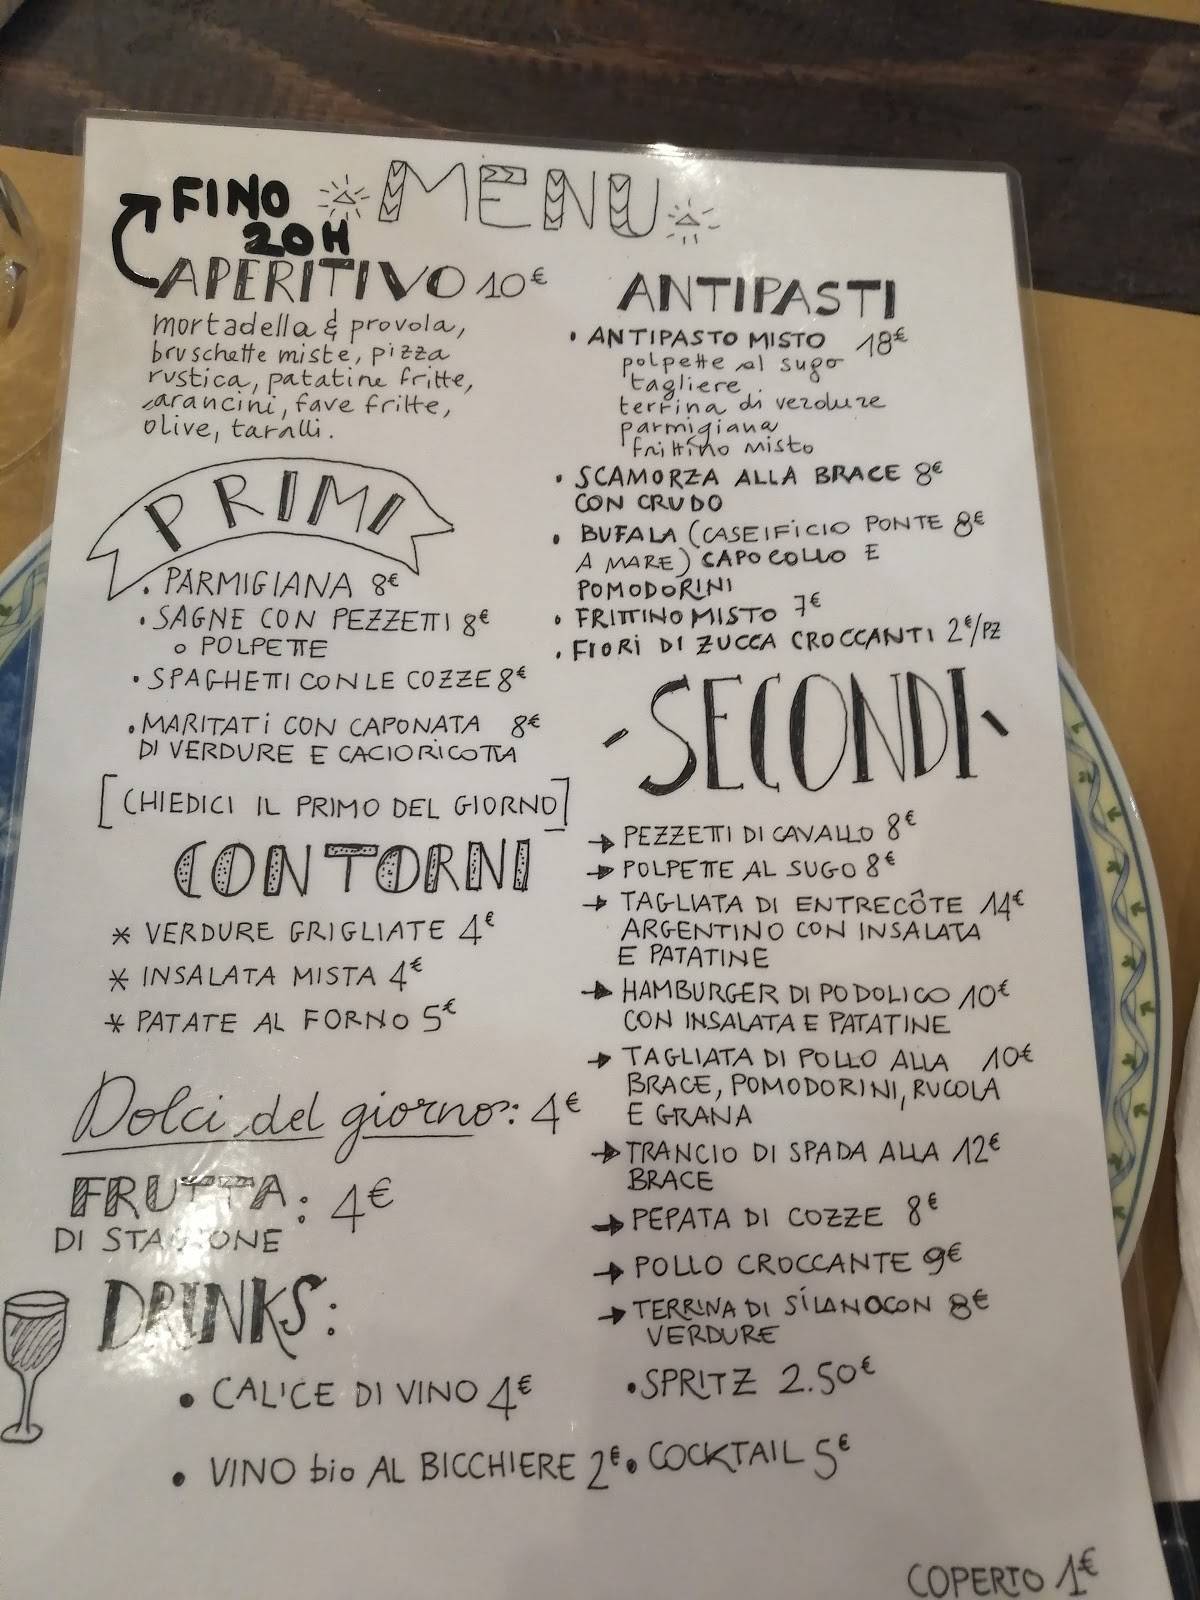 MENU
FINO
20H
APERITIVO 10€
mortadella & provola,
bruschette miste, pizza
rustica, patatine fritte,
arancini, fave fritte,
olive, taralli.
PRIMI
• PARMIGIANA 8€
• SAGNE CON PEZZETTI 8€
o POLPETTE
• SPAGHETTI CON LE COZZE 8€
• MARITATI CON CAPONATA 8€
DI VERDURE E CACIORICOTTA
[CHIEDICI IL PRIMO DEL GIORNO]
CONTORNI
* VERDURE GRIGLIATE 4€
* INSALATA MISTA 4€
* PATATE AL FORNO 5€
Dolci del giorno: 4€
FRUTTA: 4€
DI STAGIONE
DRINKS:
• CALICE DI VINO 4€
• VINO bio AL BICCHIERE 2€
ANTIPASTI
• ANTIPASTO MISTO 18€
polpette al sugo
tagliere
terrina di verdure
parmigiana
frittino misto
• SCAMORZA ALLA BRACE 8€
CON CRUDO
• BUFALA (CASEIFICIO PONTE 8€
A MARE) CAPOCOLLO E
POMODORINI
• FRITTINO MISTO 7€
• FIORI DI ZUCCA CROCCANTI 2€/PZ
-SECONDI-
→ PEZZETTI DI CAVALLO 8€
→ POLPETTE AL SUGO 8€
→ TAGLIATA DI ENTRECÔTE 14€
ARGENTINO CON INSALATA
E PATATINE
→ HAMBURGER DI PODOLICO 10€
CON INSALATA E PATATINE
→ TAGLIATA DI POLLO ALLA 10€
BRACE, POMODORINI, RUCOLA
E GRANA
→ TRANCIO DI SPADA ALLA 12€
BRACE
→ PEPATA DI COZZE 8€
→ POLLO CROCCANTE 9€
→ TERRINA DI SILANO CON 8€
VERDURE
• SPRITZ 2.50€
• COCKTAIL 5€
COPERTO 1€